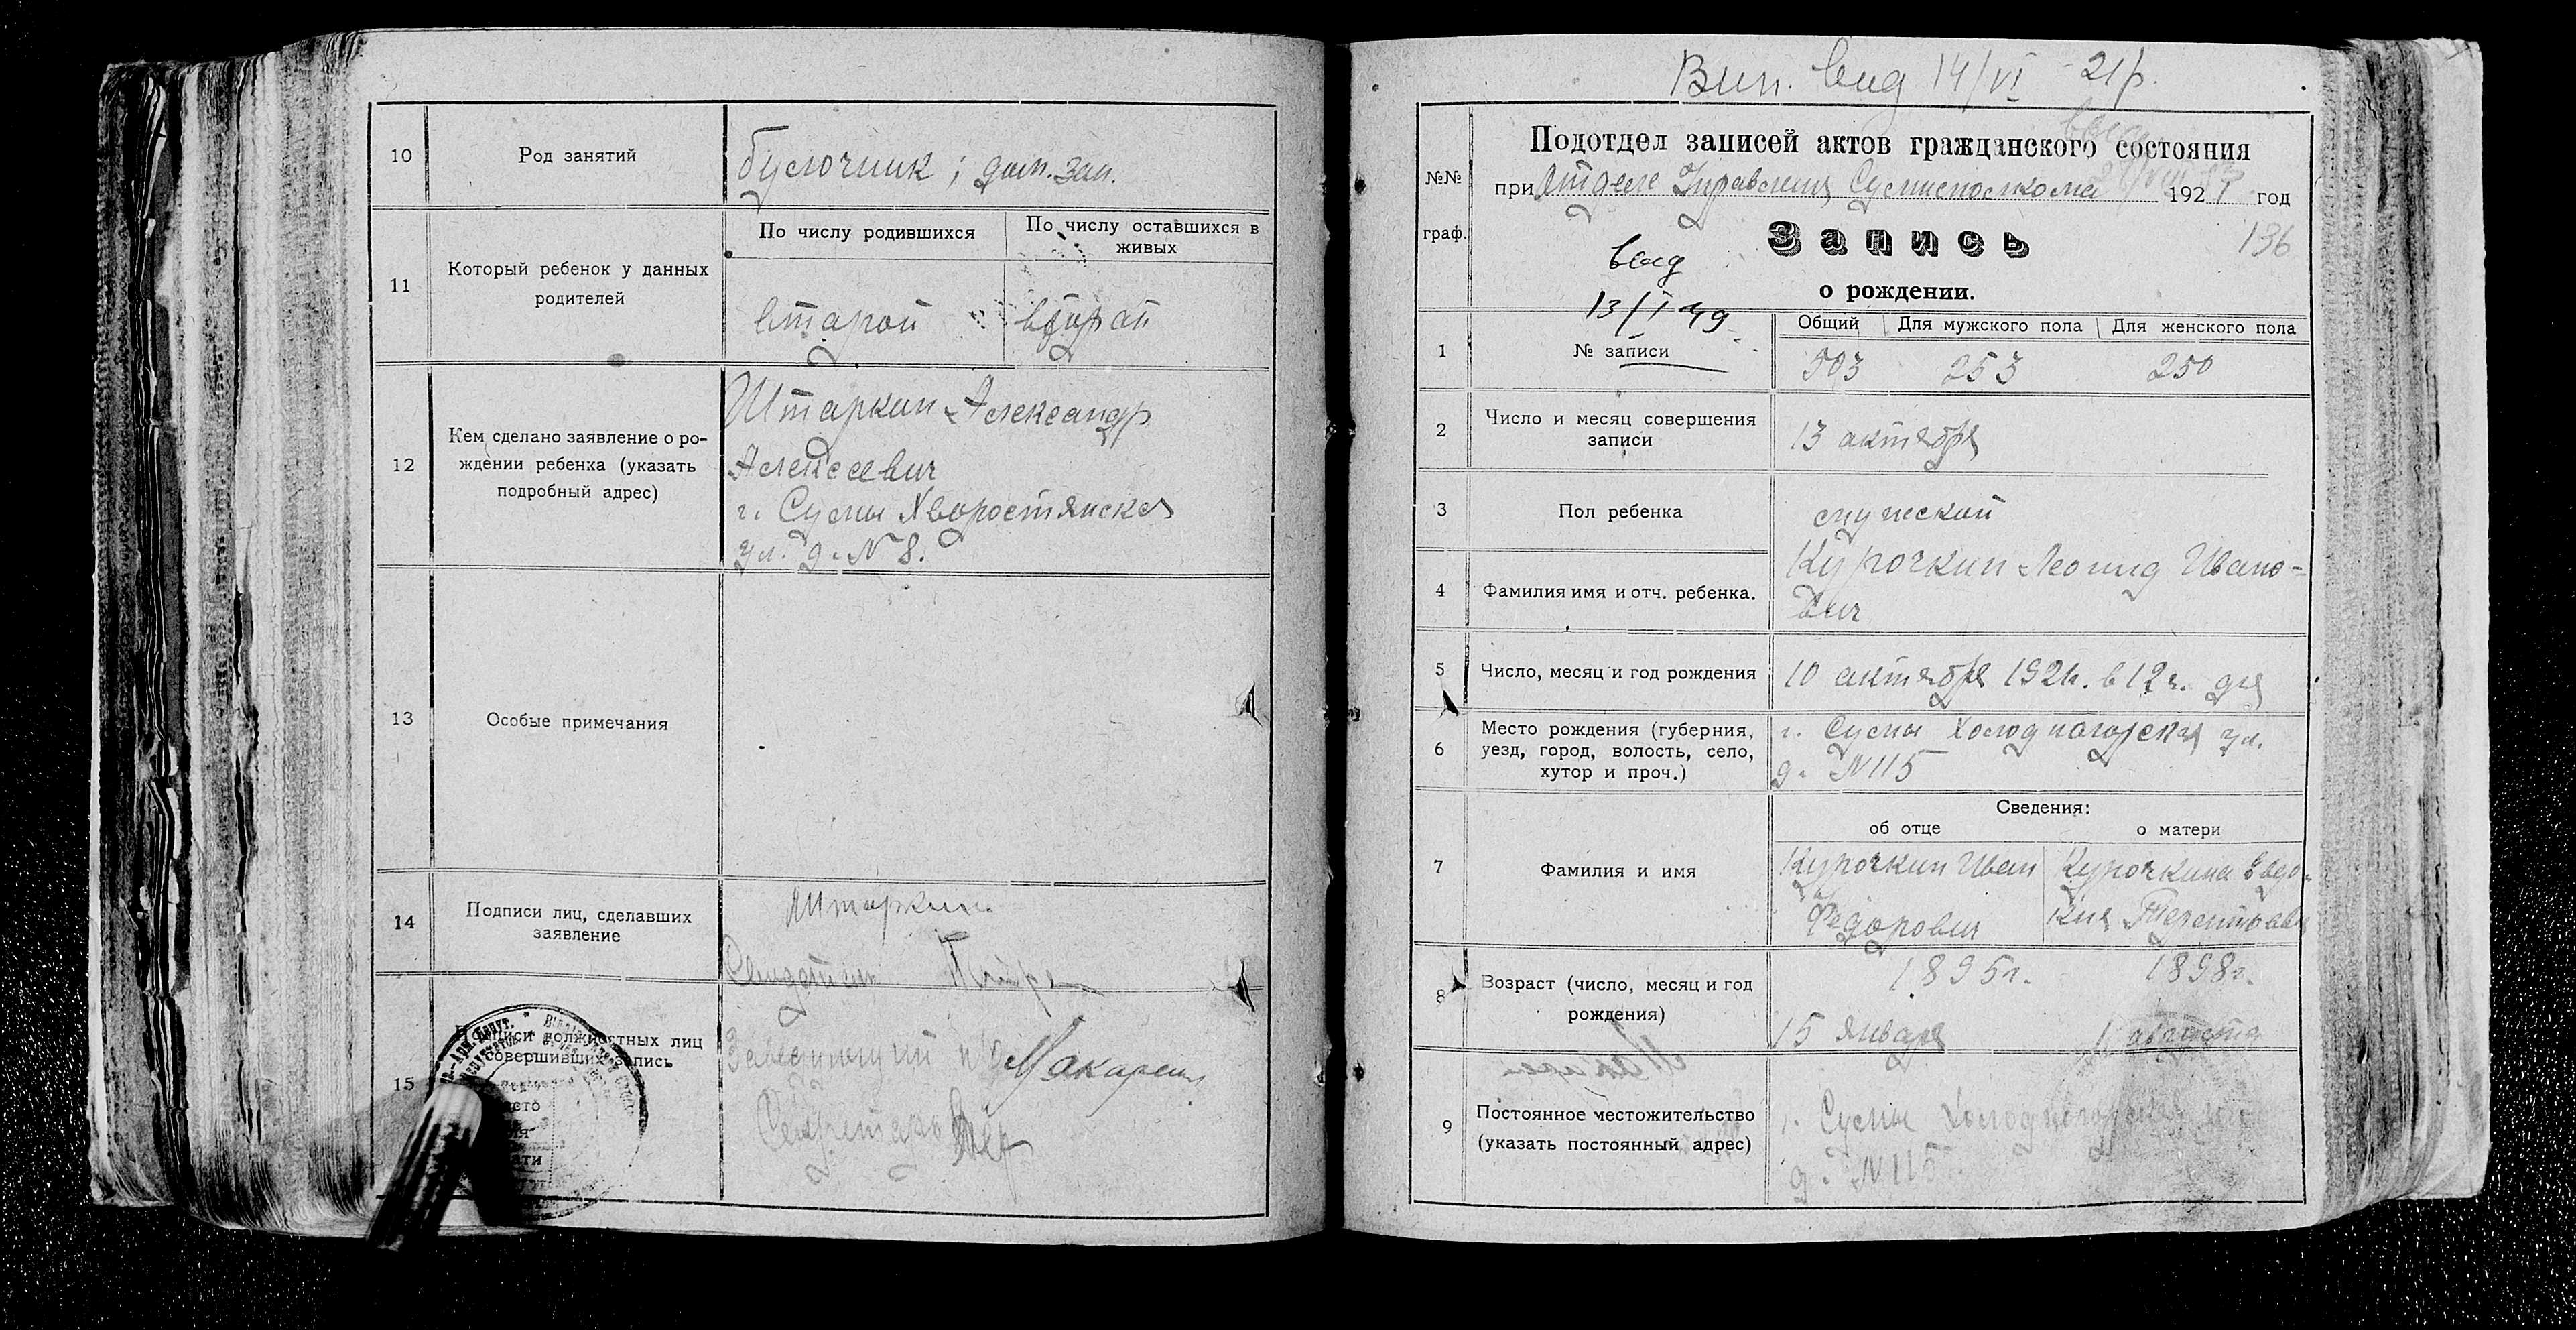 10
Род занятий
булочник; дом. зан.
11
Который ребенок у данных
родителей
По числу родившихся
По число оставшихся в
живых
второй
второй
12
Кем сделано заявление о ро-
ждении ребенка (указать
подробный адрес)
Штаркин Александр
Алексеевич
г. Сумы Хворостянская
ул. д. № 8.
13
Особые примечания
14
Подписи лиц, сделавших
заявление
Штаркин
15
должностных лиц
совершивших запись
Заведующий п/о
Секретарь
Вид 14/VI 21р.
№№
граф.
Подотдел записей актов гражданского состояния
при Отделе Управления Сумисполкома 1921 год
Запись
136
о рождении.
вид
13/I 49
1
№ записи
Общий
Для мужского пола
Для женского пола
503
253
250
2
Число и месяц совершения
записи
13 октября
3
Пол ребенка
мужской
4
Фамилия имя и отч. ребенка.
Курочкин Леонид Ивано-
вич
5
Число, месяц и год рождения
10 октября 1921г. в 12 ч. дня
6
Место рождения (губерния,
уезд, город, волость, село,
хутор и проч.)
г. Сумы Холодногорская ул.
д. №115
7
Фамилия и имя
Сведения:
об отце
о матери
Курочкин Иван
Федорович
Курочкина Евдо-
кия Терентьевна
8
Возраст (число, месяц и год
рождения)
1895г.
15 января
1898г.
1 августа
9
Постоянное местожительство
(указать постоянный адрес)
г. Сумы Холодногорская ул.
д. №115